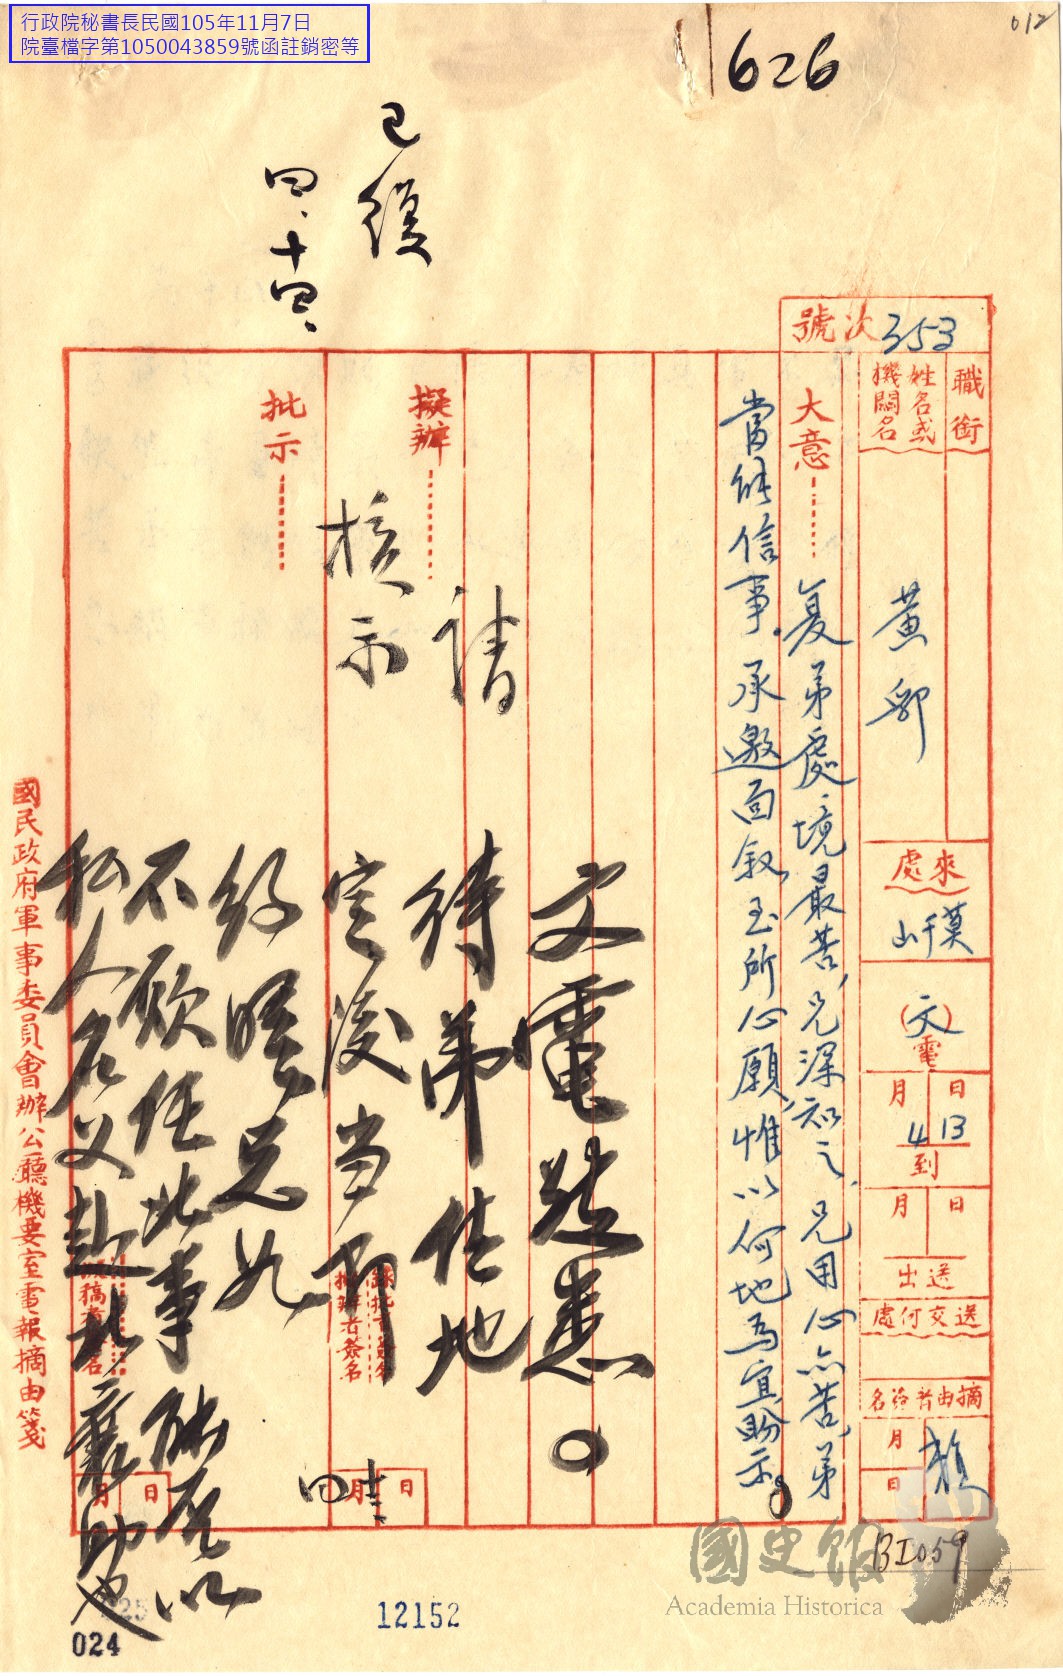 行政院秘書長民國105年11月7日
院臺檔字第1050043859號函註銷密等
012
626
已復
四、十四、
號次 353
職銜
姓名或機關名
黃郛
來處
莫干山
(文)電
月 日
4 13
到
月 日
送出
送交何處
摘由者簽名
月
日
大意
復弟處境最苦,兄深知之、兄用心亦苦,弟
當能信事。承邀面敘,至所心願,惟以何地為宜盼示。
擬辦
請
核示
四 十三
月 日
批示
文電敬悉。
待弟住地
定後當再
約晤兄如
不願任此事能否以
私人名義赴北襄助也
月 日
國民政府軍事委員會辦公廳機要室電報摘由箋
024
12152
國史館
Academia Historica
BI059